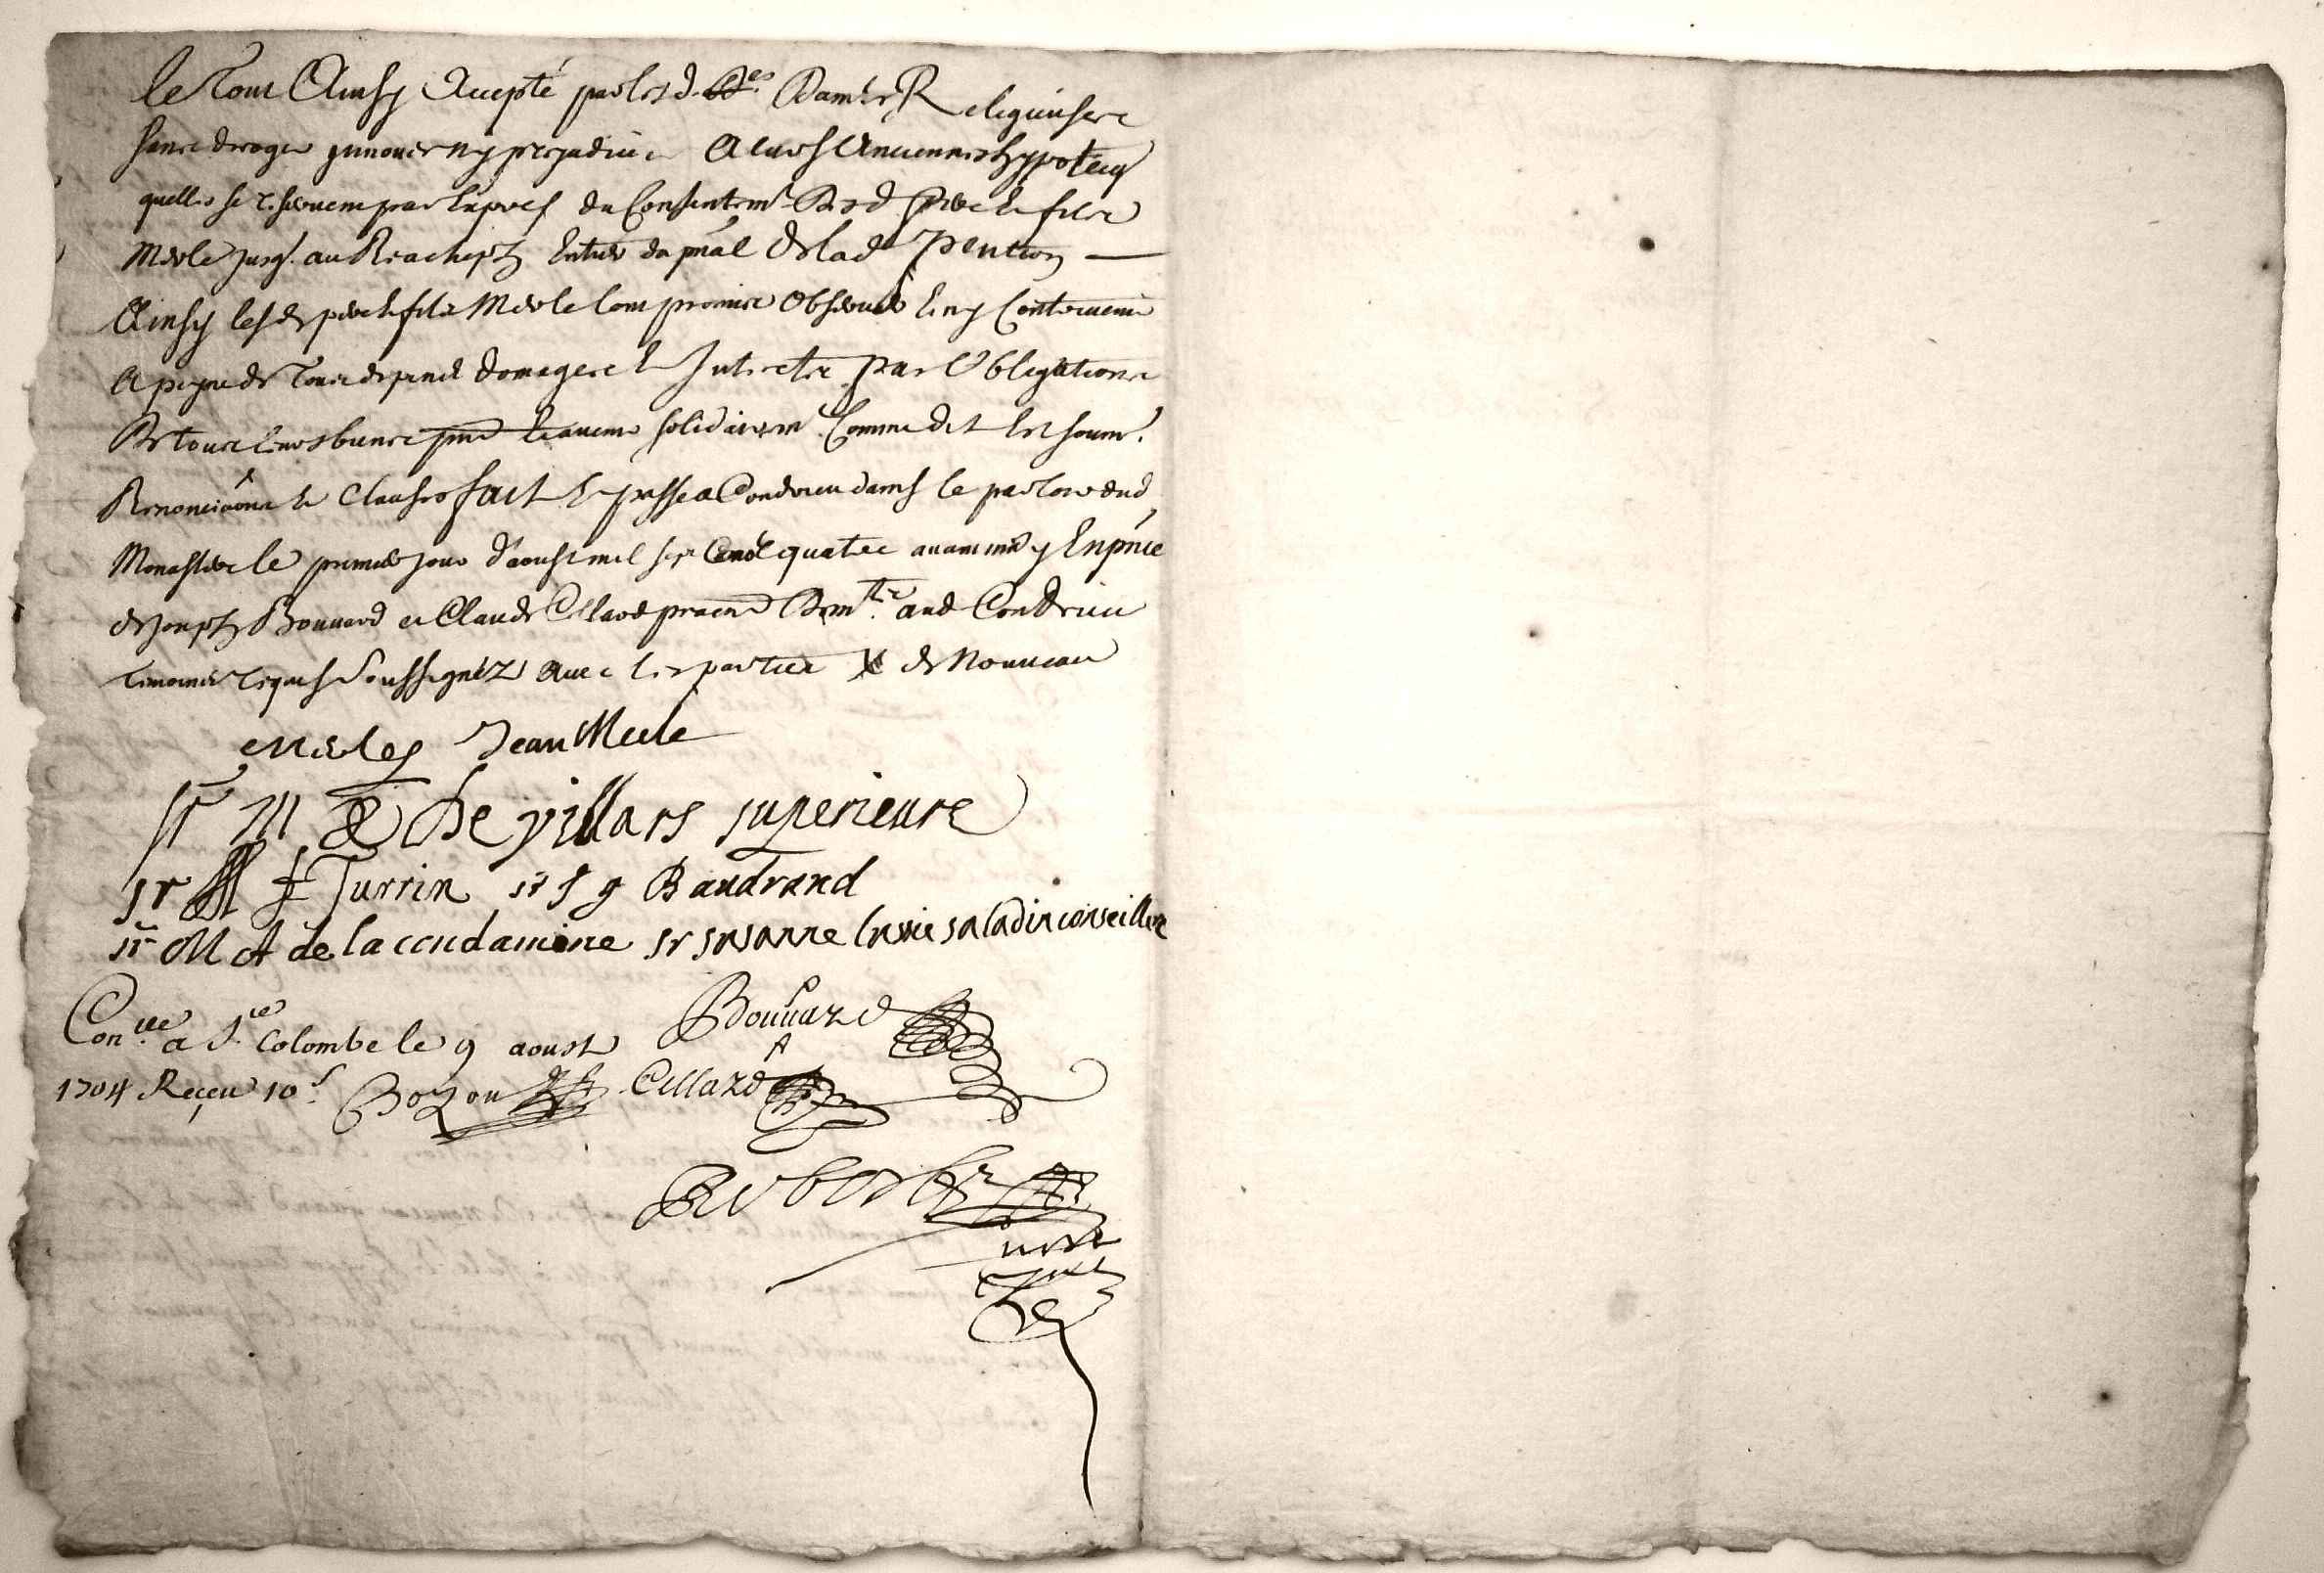 le Tout Ainsy Accepté par lesd. Dames Religieuses
sans deroger innover ny prejudicier A leurs Anciennes hypoteq
quelles se reservent par Exprés du Consentemt Desd pere et fils
Merle jusq. au Reachept Entier du pnal de lad Pention
Ainsy lesds pere et fils Merle lont promis Observer et ny Contrevenir
A peyne de Tous despend domages et Interets par Obligations
De tous leurs biens solidairemt Comme dit Est soumi.
Renonciaons et Clauses fait et passé a Condrieu dans le parloir dud
Monastere le premier jour d'aoust mil sept Cens quatre avant midy En pnce
de Joseph Bonnard et Claude Cellard praticiens aud Condrieu
temoins requis Soussignez avec les parties de Nouveau
Merle Jean Merle
sr M De villars superieure
sr F Turrin sr f g Baudrand
sr M A de la condamine sr susanne saladin conseillere
Conlle a Ste Colombe le 9 aoust Bonnard
1704 Reçeu 10s Bozon Cellard